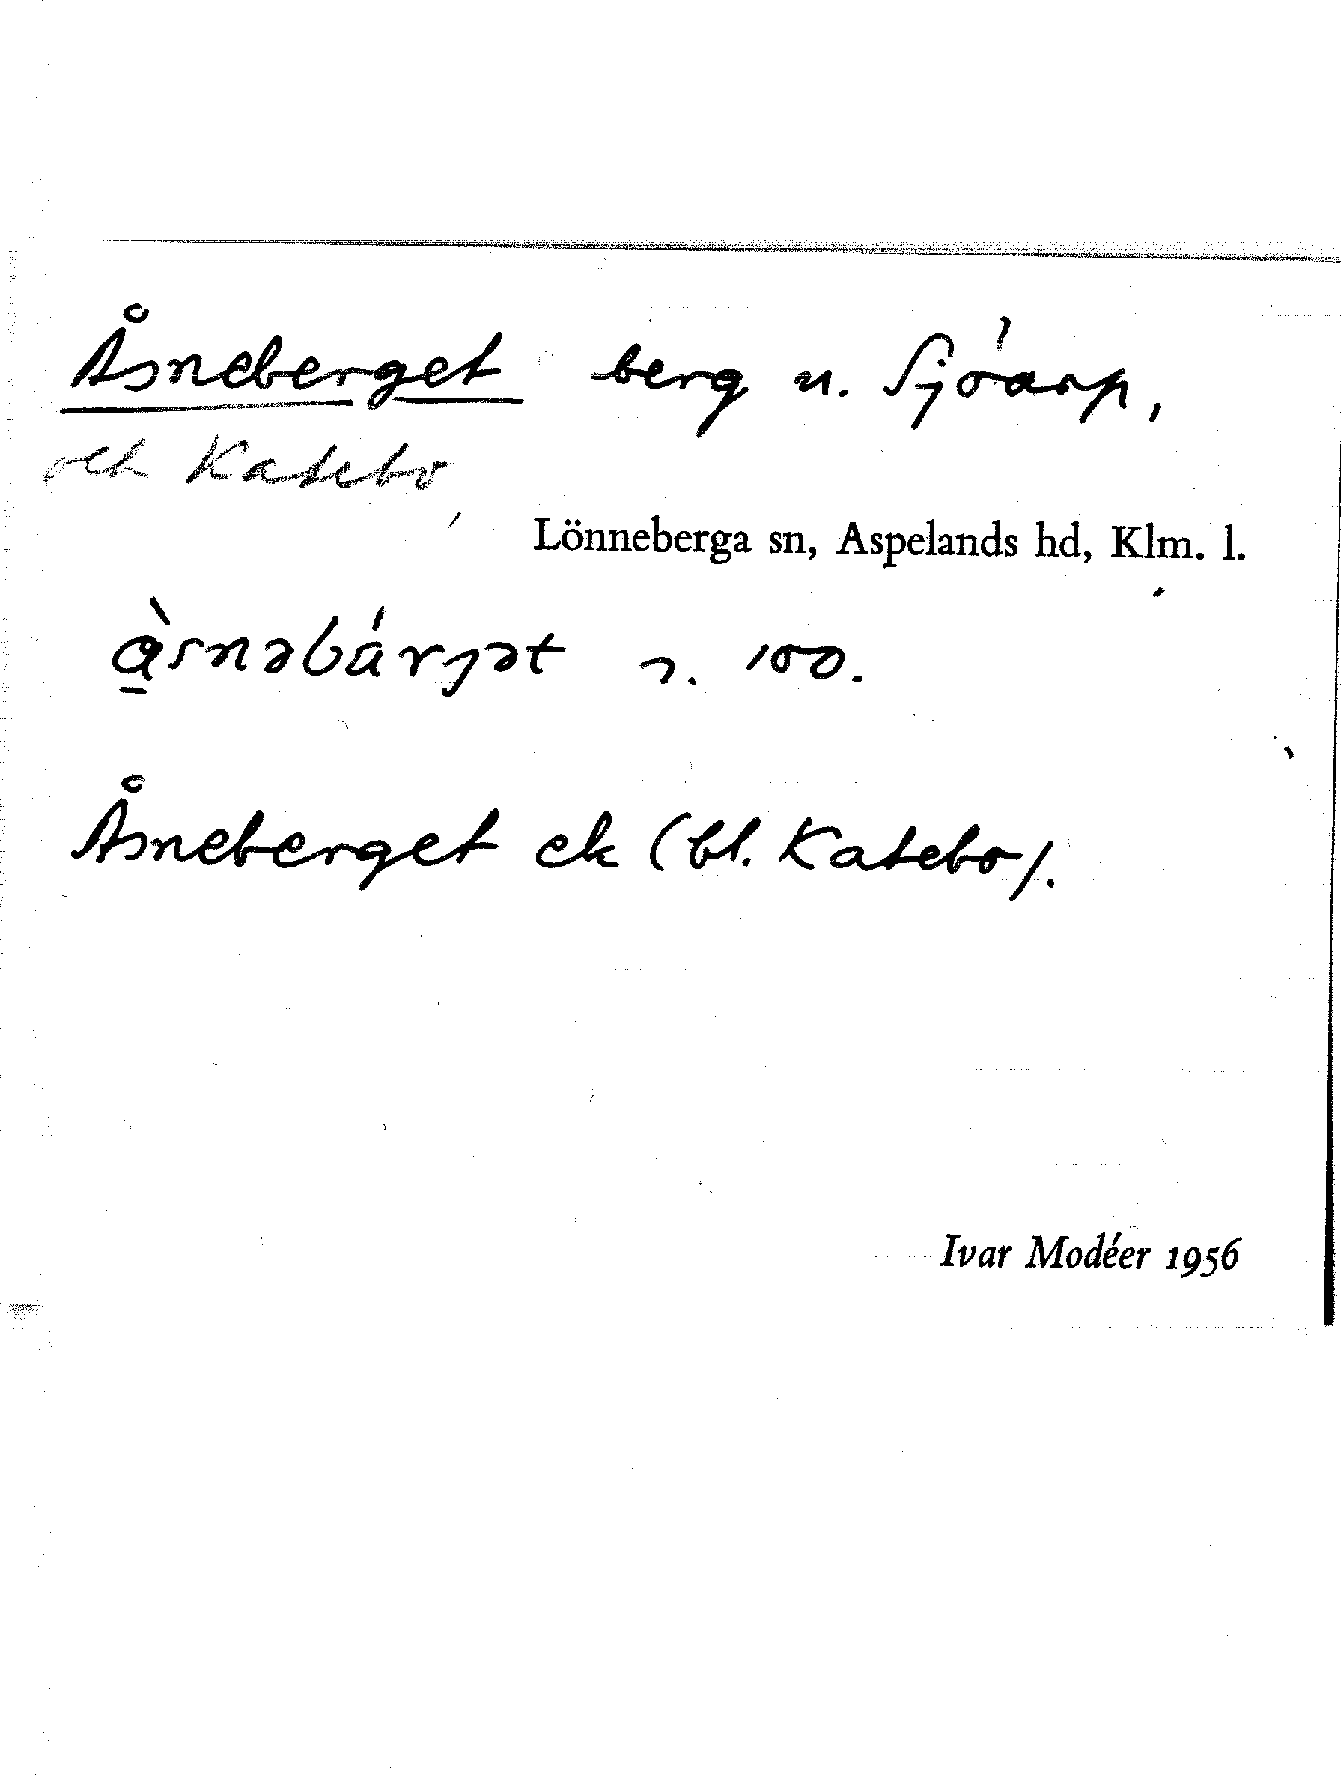 Åsneberget berg n. Sjöarp,
och Katebo
Lönneberga sn, Aspelands hd, Klm. l.
à̱snəbárjət 100.
Åsneberget ek (bl. Katebo).
Ivar Modéer 1956